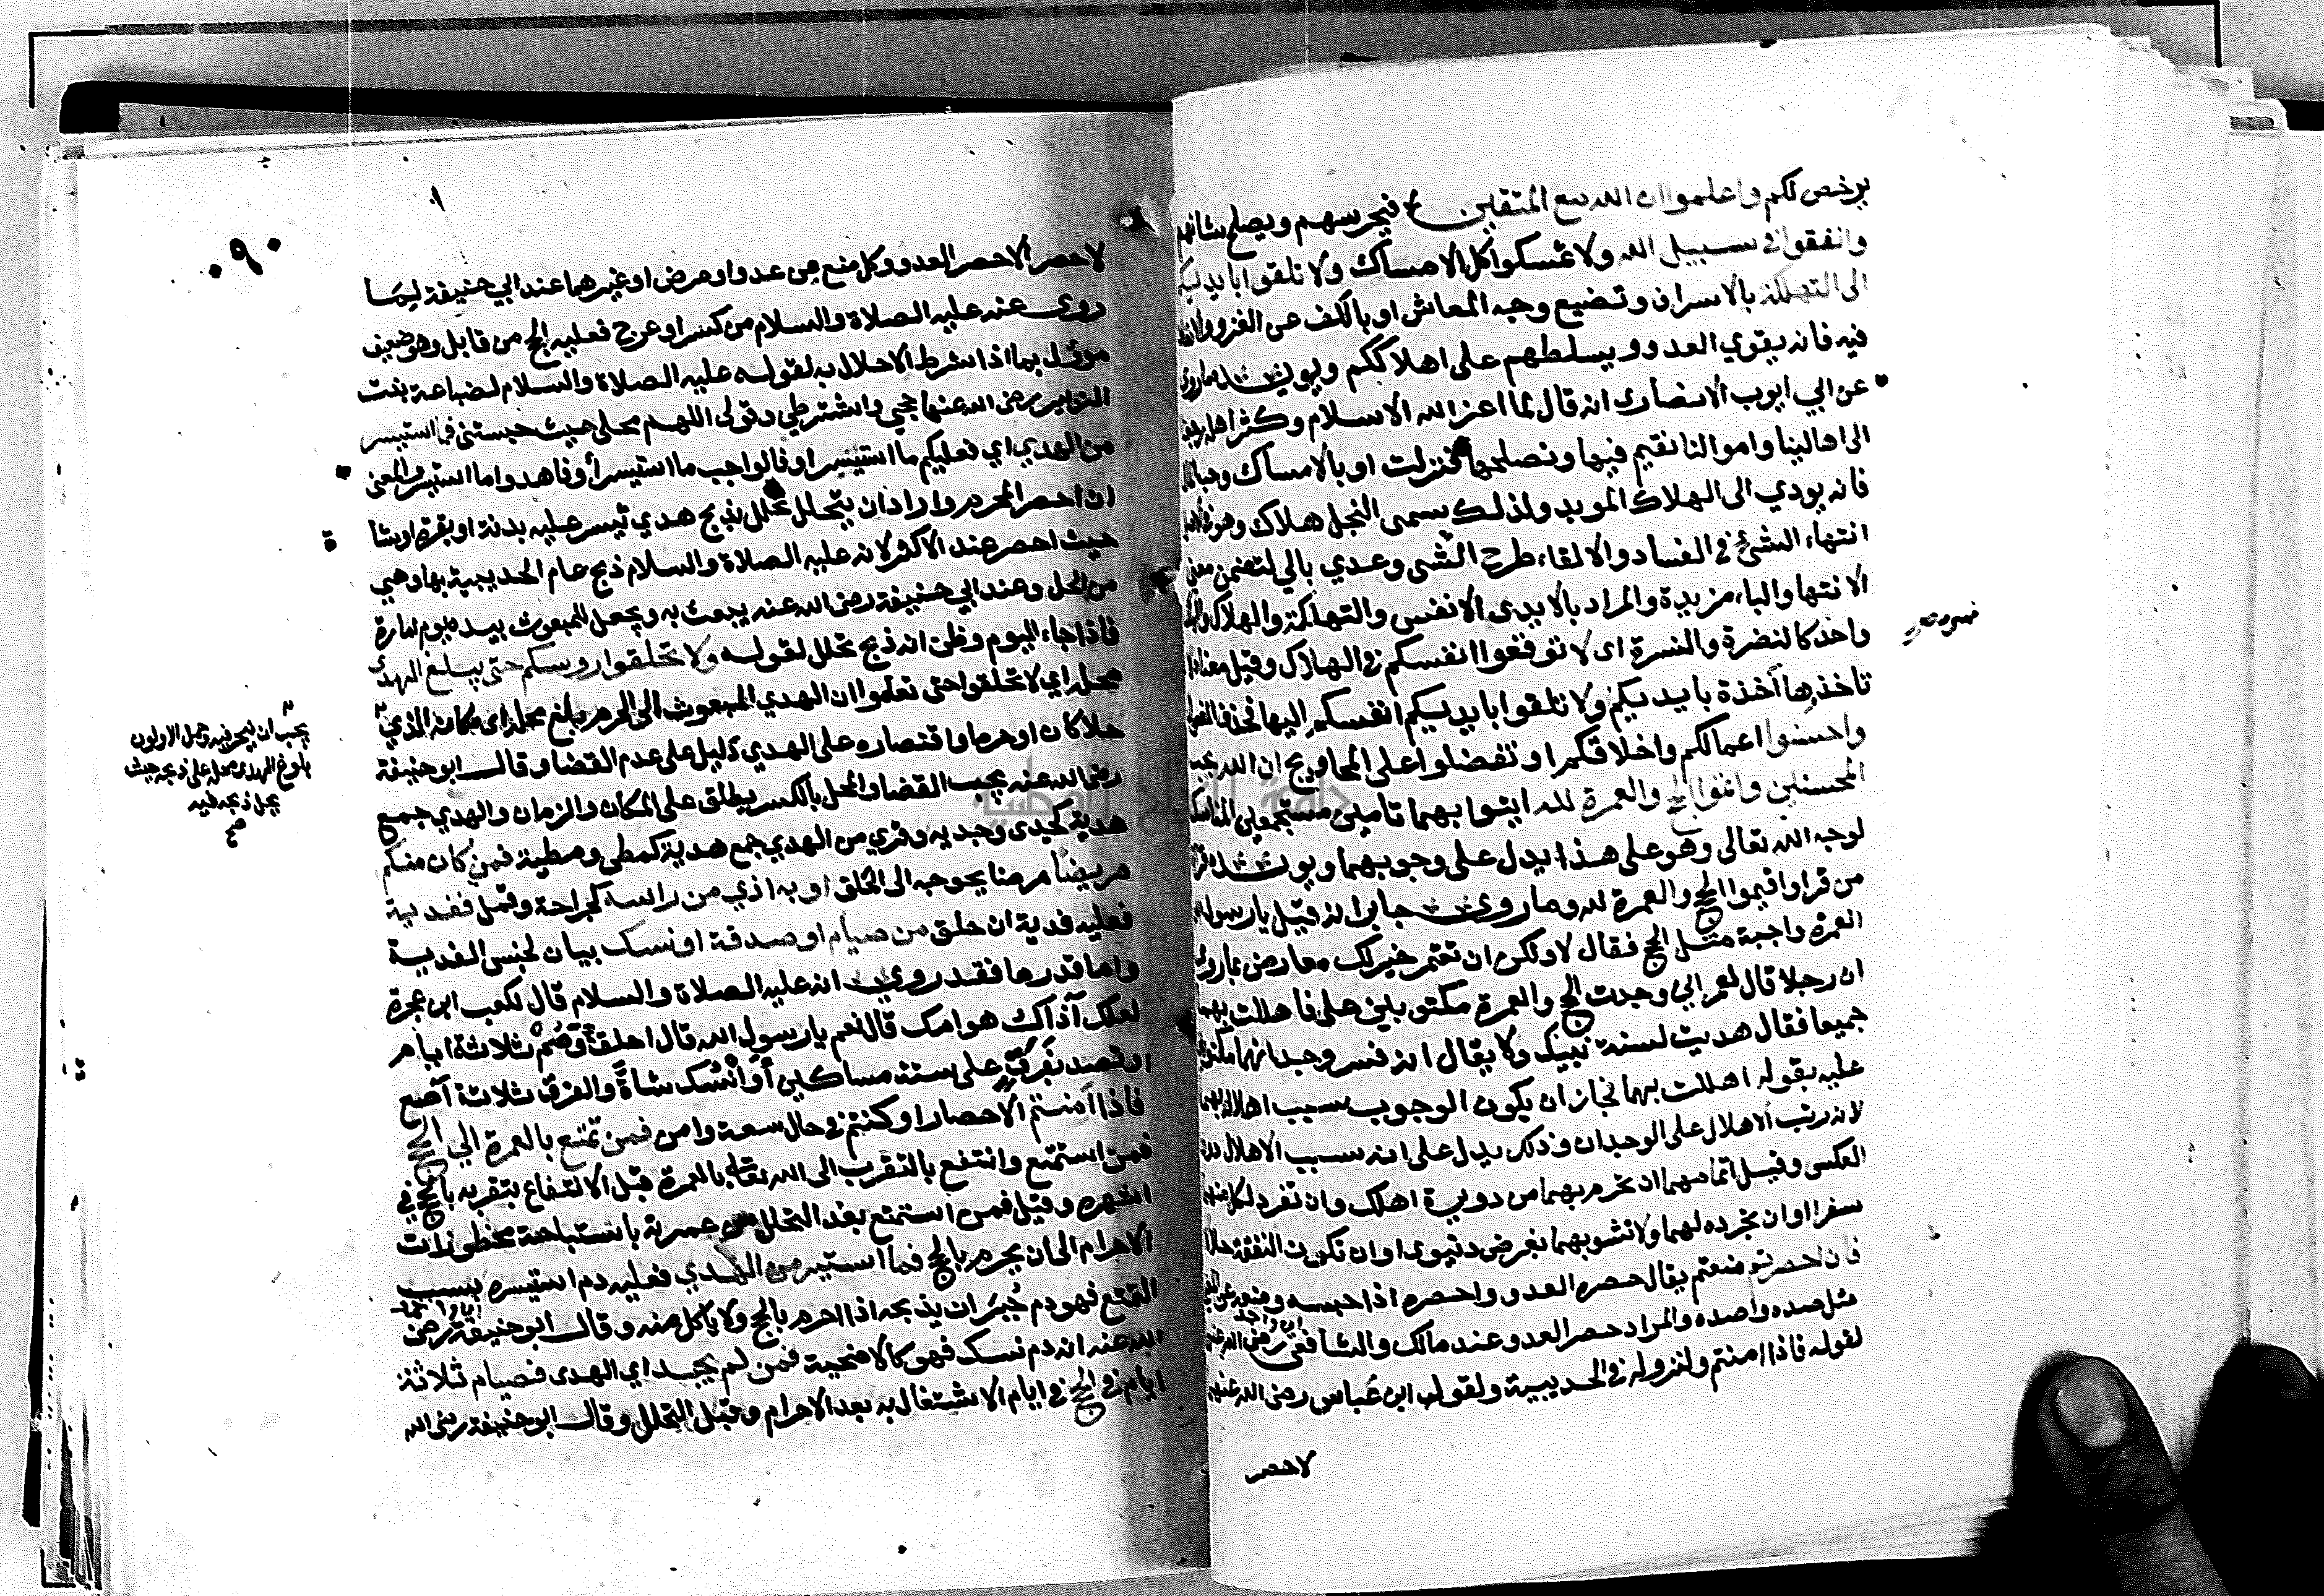 يرخص لكم واعلموا ان الله مع المتقين فيحرسهم ويصلح شانهم
وانفقوا في سبيل الله ولا تمسكوا كل الامساك ولا تلقوا بايديكم
الى التهلكة بالاسراف وتضييع وجه المعاش او بالكف عن الغزو والانفاق
فيه فانه يقوي العدو ويسلطهم على اهلاككم ويويده ما روى
عن ابي ايوب الانصارى انه قال لما اعز الله الاسلام وكثر اهله رجعنا
الى اهالينا واموالنا نقيم فيها ونصلحها فنزلت او بالامساك وحب المال
فانه يودي الى الهلاك الموبد ولذلك سمى البخل هلاك وهو في الاصل
انتهاء الشئ في الفساد والالقاء طرح الشى وعدي بالي لتضمن معنى
الانتها والباء مزيدة والمراد بالايدى الانفس والتهلكة والهلاك والهلك
واحد كالنضرة والنسرة اى لا توقعوا انفسكم في الهلاك وقيل معناه لا
تاخذها آخذة بايديكم ولا تلقوا بايديكم انفسكم اليها فحذف المفعول
واحسنوا اعمالكم واخلاقكم او تفضلوا على المحاويج ان الله يحب
المحسنين واتموا الحج والعمرة لله ايتوا بهما تامين مستجمعي المناسك
لوجه الله تعالى وهو على هذا يدل على وجوبهما ويويده قراة
من قرا واقيموا الحج والعمرة لله وما روى جابر انه قيل يا رسول الله
العمرة واجبة مثل الحج فقال لا ولكن ان تعتمر خير لك معارض بما روى
ان رجلا قال لعمر اني وجدت الحج والعمرة مكتوبين على فاهللت بهما
جميعا فقال هديت لسنة نبيك ولا يقال انه فسر وجدانهما مكتوبين
عليه بقوله اهللت بهما فجاز ان يكون الوجوب بسبب اهلاله بهما
لانه رتب الاهلال على الوجدان وذلك يدل على انه سبب الاهلال دون
العكس وقيل اتمامهما ان تحرم بهما من دويرة اهلك وان تفرد لكل منهما
سفرا او ان تجرده لهما ولا تشوبهما بغرض دنيوى او ان تكون النفقة حلالا
فان احصرتم منعتم يقال حصره العدو واحصره اذا حبسه ومنعه عن المضي
مثل صده واصده والمراد حصر العدو عند مالك والشافعي رضي الله عنهما
لقوله فاذا امنتم ولنزوله في الحديبية ولقول ابن عباس رضى الله عنهما
لا حصر
لا حصر الا حصر العدو وكل منع من عدو او مرض او غيرهما عند ابي حنيفة لما
روى عنه عليه الصلاة والسلام من كسر او عرج فعليه الحج من قابل وهو ضعيف
موئل بما اذا شرط الاحلال به لقوله عليه الصلاة والسلام لضباعة بنت
الزبير رضى الله عنها حجي واشترطي وقولى اللهم محلى حيث حبستنى فما استيسر
من الهدي اي فعليكم ما استيسر او فالواجب ما استيسر أو فاهدوا ما استيسر والمعنى
ان احصر المحرم واراد ان يتحلل تحلل بذبح هدي تيسر عليه بدنة او بقرة او شاة
حيث احصر عند الاكثر لانه عليه الصلاة والسلام ذبح عام الحديبية بها وهي
من الحل وعند ابي حنيفة رضى الله عنه يبعث به ويجعل للمبعوث بيده يوم امارة
فاذا جاء اليوم وظن انه ذبح تحلل لقوله ولا تحلقوا روسكم حتى يبلغ الهدى
محله اي لا تحلقوا حتى تعلموا ان الهدي المبعوث الى الحرم بلغ محله اى مكانه الذي
حلا كان او حرما واقتصاره على الهدي دليل على عدم القضا وقال ابو حنيفة
رضى الله عنه يجب القضا والمحل بالكسر يطلق على المكان والزمان والهدي جمع
هدية كجدى وجدية وقري من الهدي جمع هدية كمطى ومطية فمن كان منكم
مريضا مرضا يحوجه الى الحلق او به اذي من راسه كجراحة وقمل ففدية
فعليه فدية ان حلق من صيام او صدقة او نسك بيان لجنس الفدية
واما قدرها فقد روي انه عليه الصلاة والسلام قال لكعب ابن عجرة
لعلك آذاك هوامك قال نعم يا رسول الله قال احلق وصُمْ ثلاثة ايام
او تصدق بفرق على ستة مساكين أو انْسُك شاةً والفرق ثلاثة آصع
فاذا أمنتم الاحصار او كنتم في حال سعة وامن فمن تمتع بالعمرة الي الحج
فمن استمتع وانتفع بالتقرب الى الله تعالى بالعمرة قبل الانتفاع بتقربه بالحج في
اشهره وقيل فمن استمتع بعد التحلل من عمرته باستباحة محظورات
الاحرام الى ان يحرم بالحج فما استيسر من الهدي فعليه دم استيسره بسبب
التمتع فهو دم جُبرَان يذبحه اذا احرم بالحج ولا ياكل منه وقال ابو حنيفة رضى
الله عنه انه دم نسك فهو كالاضحية فمن لم يجد اي الهدى فصيام ثلاثة
ايام في الحج في ايام الاشتغال به بعد الاحرام وقبل التحلل وقال ابو حنيفة رضى الله
يجب ان ينحر فيه وحمل الاولون
بلوغ الهدى محله على ذبحه حيث
يحل ذبحه فيه
صح
٩٠